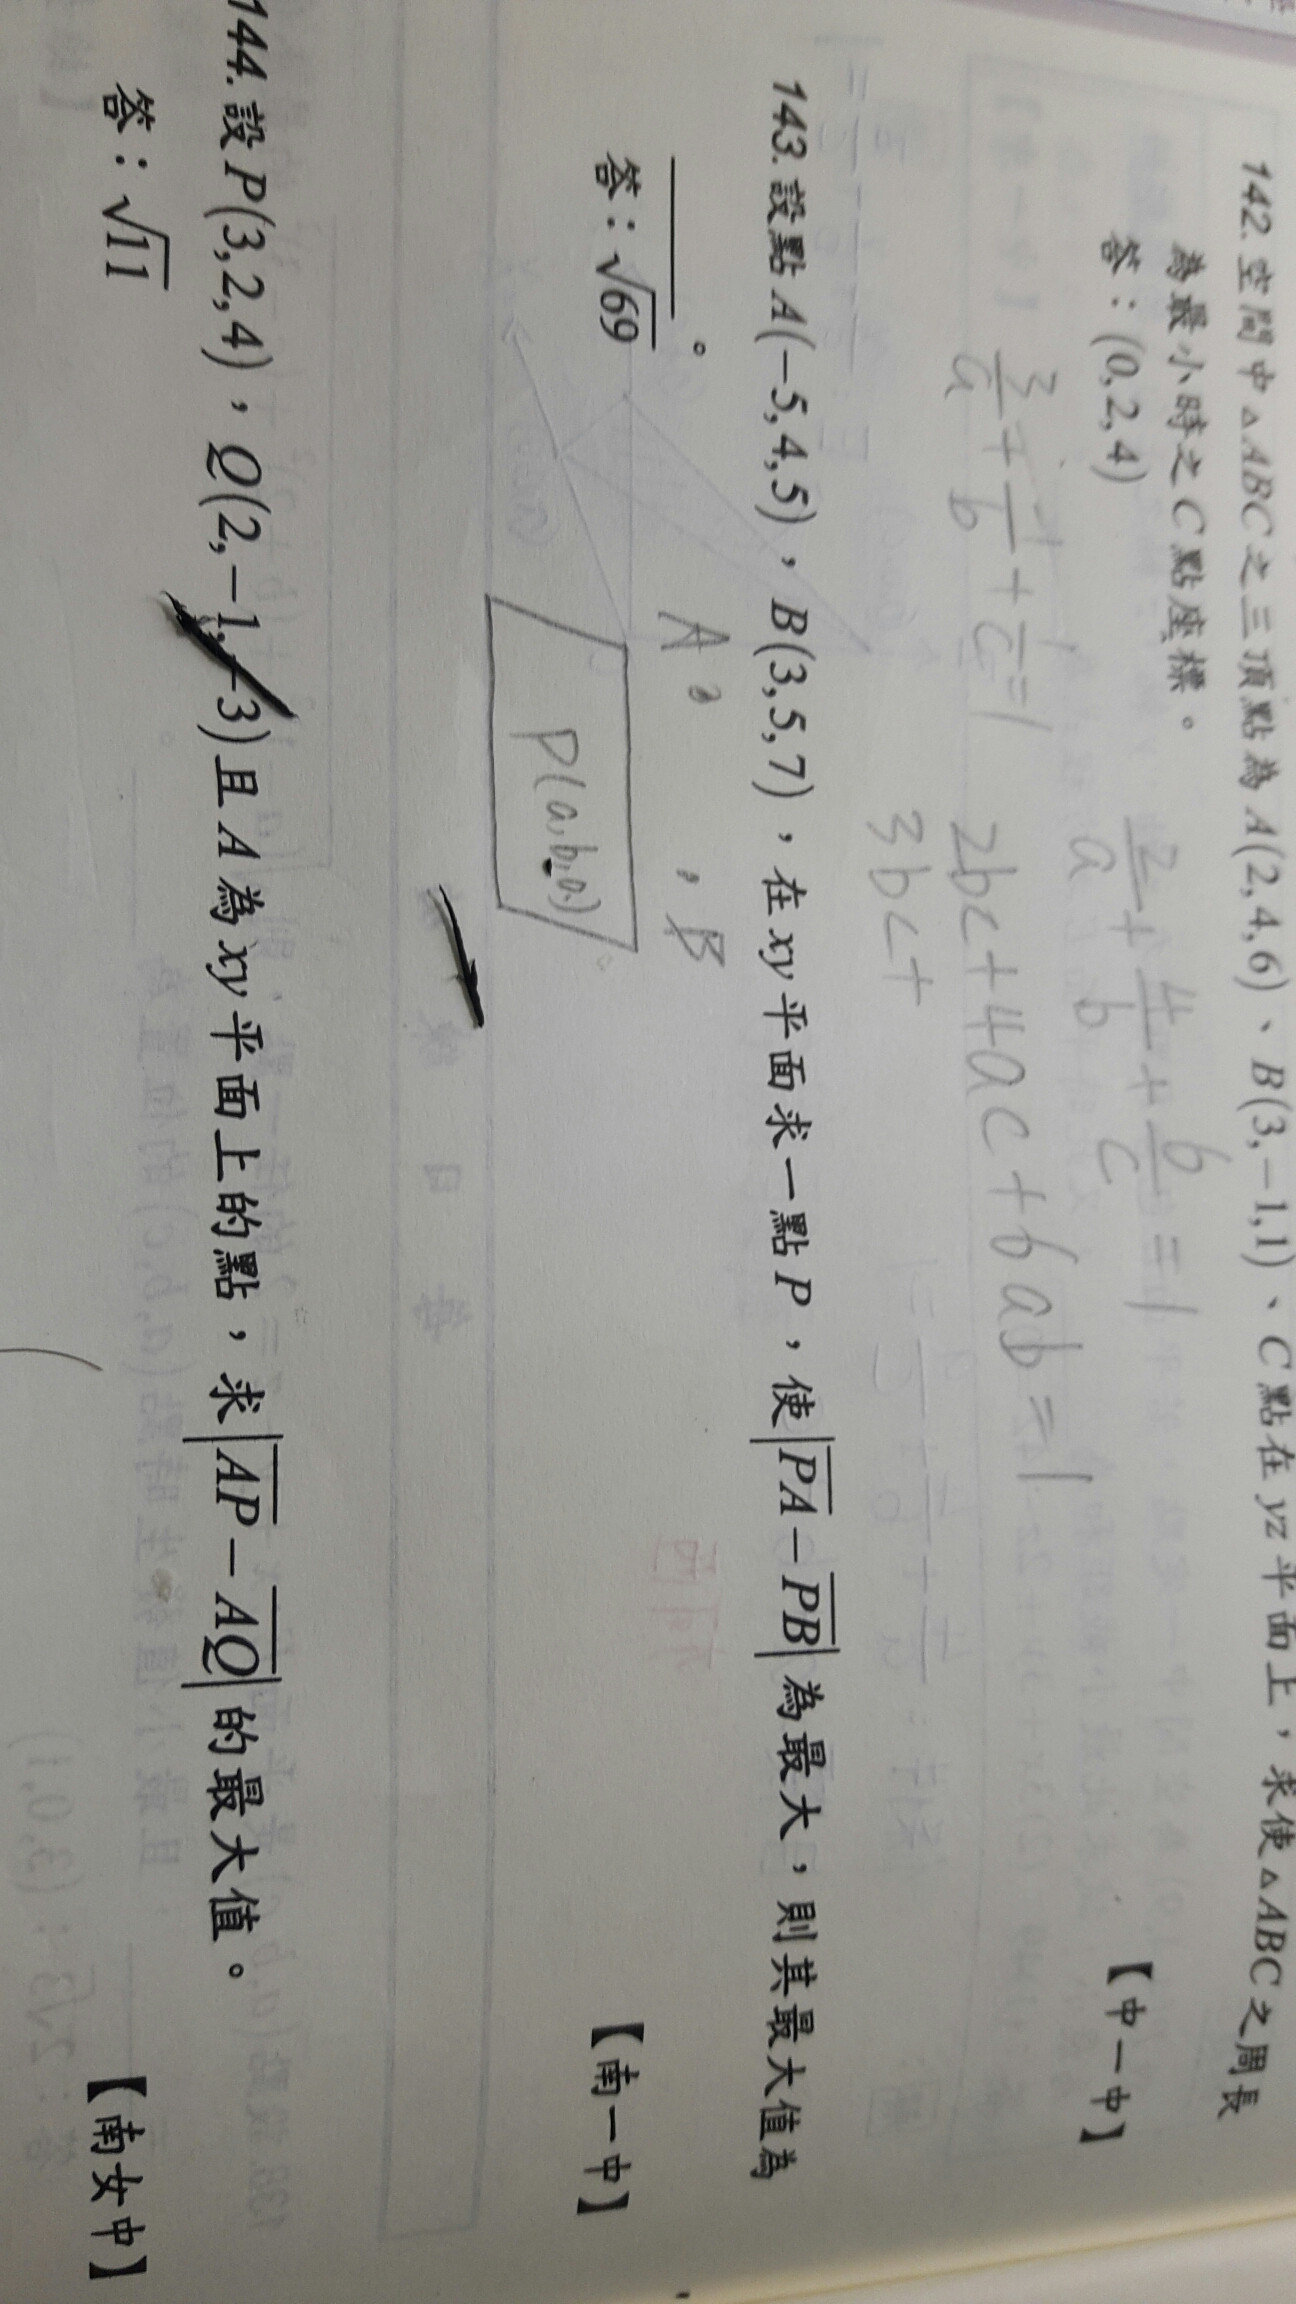 142. 空間中△ABC之三頂點為A(2,4,6)、B(3,-1,1)、C點在yz平面上，求使△ABC之周長
為最小時之C點座標。
答：(0,2,4) 【中一中】
2/a + 4/b + 6/c = 1
3/a + -1/b + 1/c = 1
2bc+4ac+6ab=1
3bc+
143. 設點A(-5,4,5)，B(3,5,7)，在xy平面求一點P，使|PA-PB|為最大，則其最大值為
______。
答：√69 【南一中】
A B
P(a,b,0)
144. 設P(3,2,4)，Q(2,-1,-3)且A為xy平面上的點，求|AP-AQ|的最大值。
答：√11 【南女中】